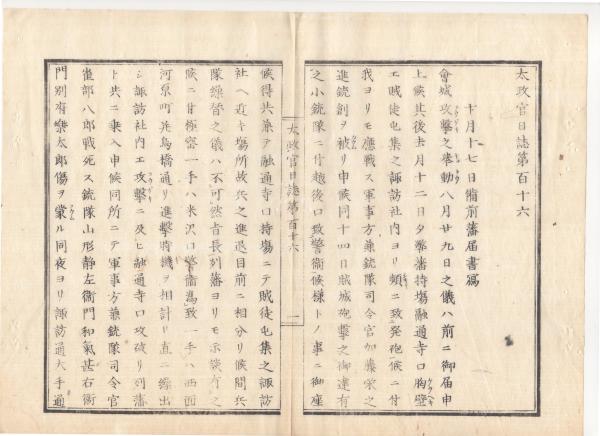 太政官日誌第百十六
十月十七日備前藩届書寫
會城攻撃之挙動八月廿九日之儀ハ前ニ御届申
上候其後去月十二日夕弊藩持塲融通寺口胸壁
エ賊徒屯集之諏訪社内ヨリ頻ニ致発砲候ニ付
我ヨリモ應戦ス軍事方兼銃隊司令官加藤栄之
進銃創ヲ被リ申候同十四日賊城砲撃之御達有
之小銃隊ニ付越後口致警衛候様トノ事ニ御座
太政官日誌第百十六
一
候得共兼テ融通寺口持塲ニテ賊徒屯集之諏訪
社ヘ近キ塲所故兵之進退目前ニ相分リ候間兵
隊繰替之儀ハ不可然旨長列藩ヨリモ示談有之
候ニ付極密一手ハ米沢口警衛為致一手ハ西面
河原町柴烏橋通リ進撃時機ヲ相計リ直ニ繰出
シ諏訪社内エ攻撃ニ及ヒ融通寺口攻破リ列藩
ト共ニ乗入申候同所ニテ軍事方兼銃隊司令官
雀部八郎戦死ス銃隊山形静左衛門和氣甚右衛
門別府樂太郎傷ヲ蒙ル同夜ヨリ諏訪通大手通